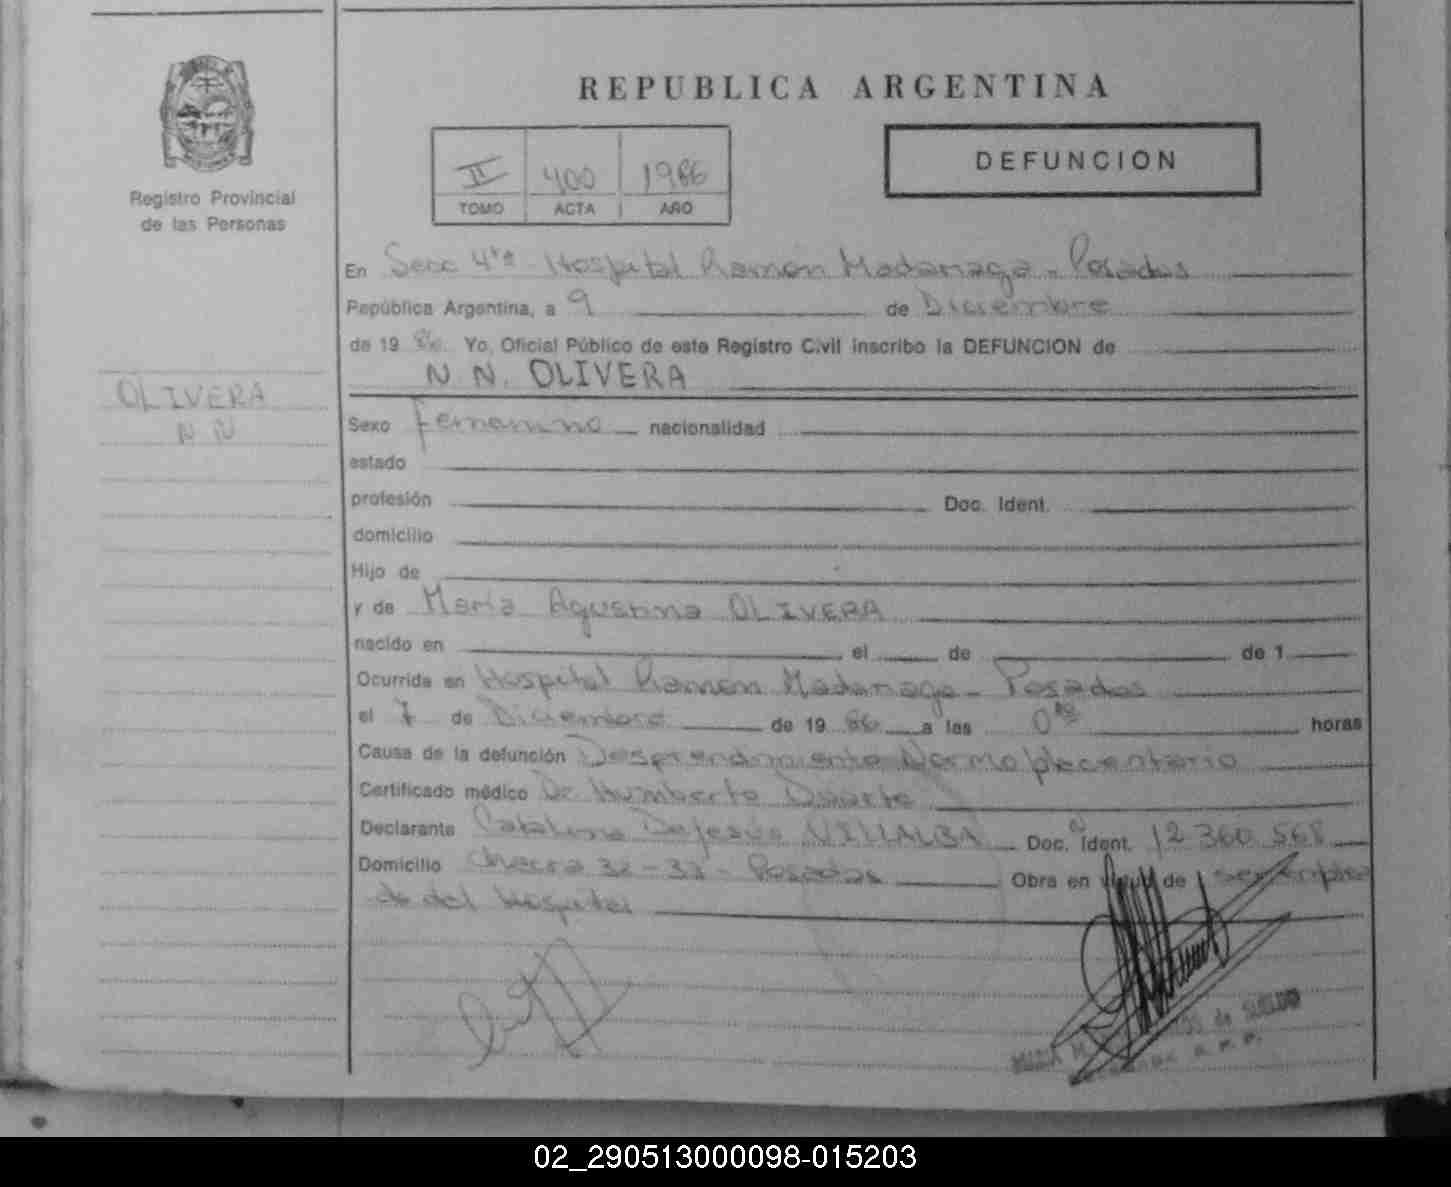 REPUBLICA ARGENTINA
DEFUNCION
II 400 1986
TOMO ACTA AÑO
Registro Provincial
de las Personas
OLIVERA
N N
En Secc 4ta Hospital Ramón Madariaga - Posadas
República Argentina, a 9 de Diciembre
de 1986. Yo, Oficial Público de este Registro Civil inscribo la DEFUNCION de
N. N. OLIVERA
Sexo Femenino nacionalidad
estado
profesión Doc. Ident.
domicilio
Hijo de
y de María Agustina OLIVERA
nacido en el de de 1
Ocurrida en Hospital Ramón Madariaga - Posadas
el 7 de Diciembre de 1986 a las 0 horas
Causa de la defunción Desprendimiento Normo placentario
Certificado médico Dr Humberto Duarte
Declarante Catalina Dejesús VILLALBA Doc. Ident. 12 360 568
Domicilio Chacra 32-33 - Posadas Obra en de ser emplea
do del Hospital
de SUELDO
02_290513000098-015203